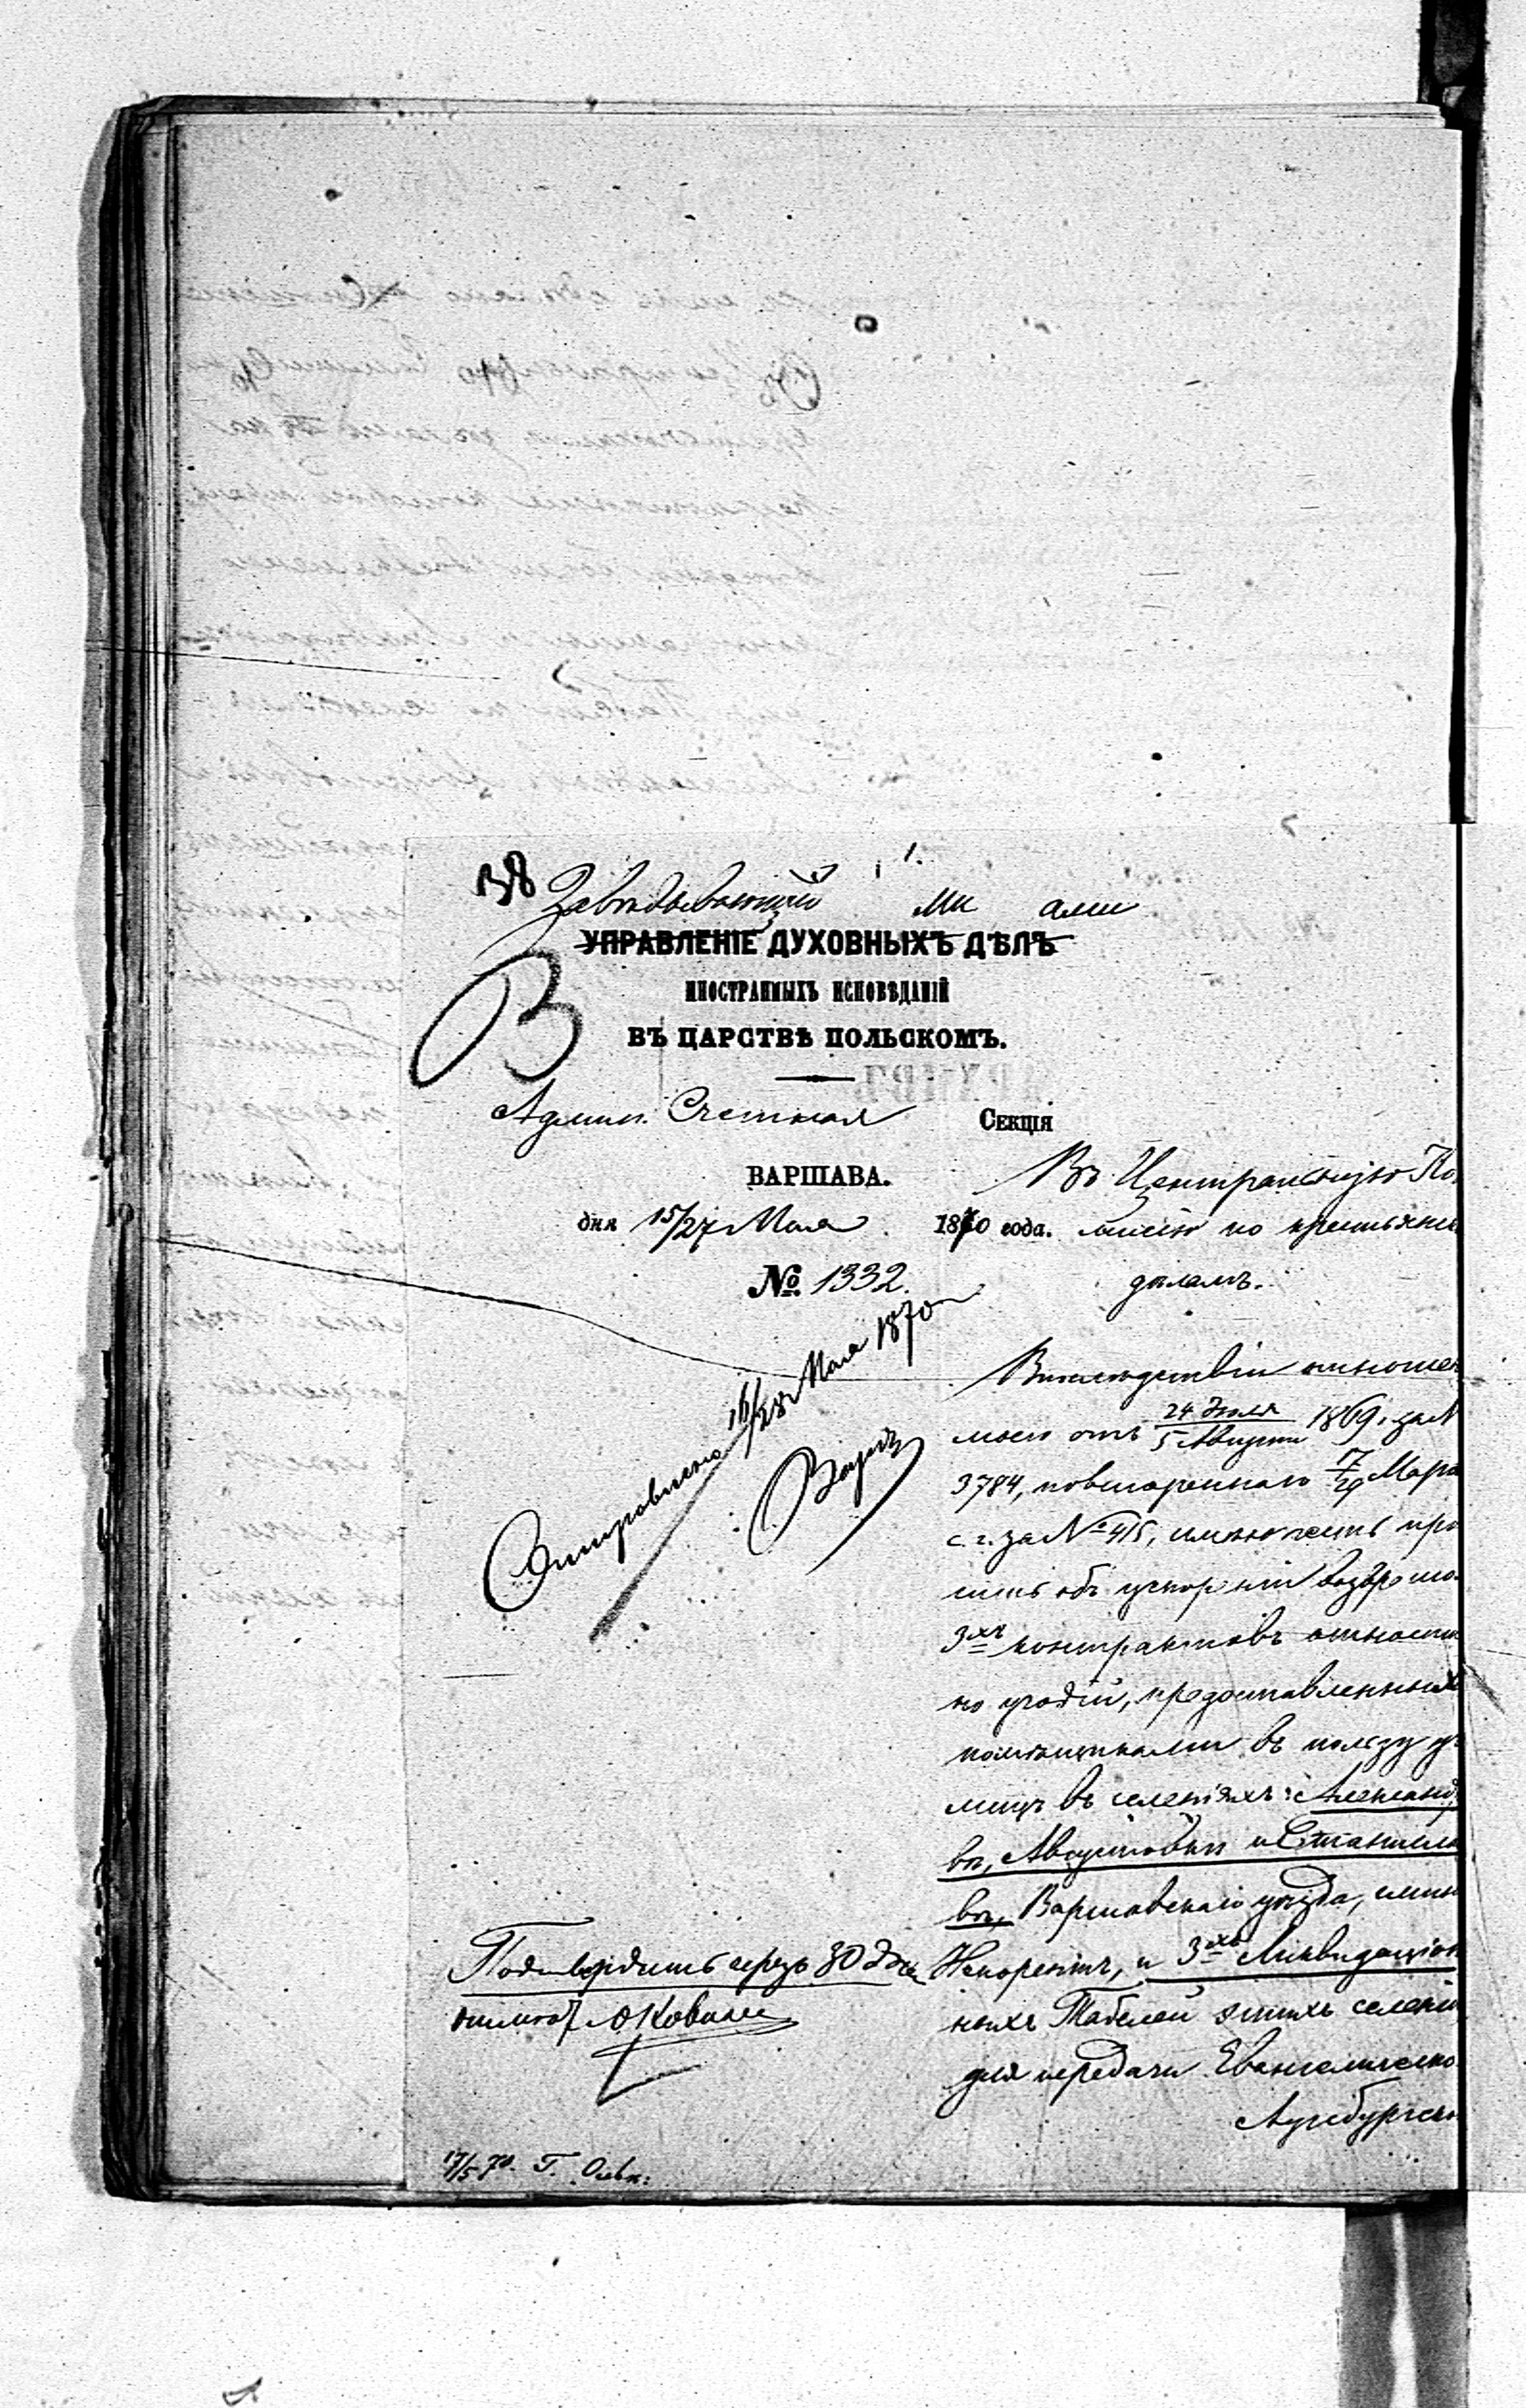 38 Завѣдывающій ми ами
УПРАВЛЕНІЕ ДУХОВНЫХЪ ДѢЛЪ
ИНОСТРАННЫХЪ ИСПОВѢДАНІЙ
ВЪ ЦАРСТВѢ ПОЛЬСКОМЪ.
Админ. Счетная Секція
ВАРШАВА.
дня 15/27 Мая 1870 года.
№ 1332.
Въ Центральную Ко
мисію по крестьянс
дѣламъ.
16/28 Мая 1870
Вслѣдствіи отноше
моего отъ 24 Іюля/5 Августа 1869 г. за №
3784, повтореннаго 17/29 Мар
с. г. за № 415, имѣю честь про
сить объ ускореніи возвр
3хъ контрактовъ относит
но угодій, предоставленных
помѣщиками въ пользу у
лищъ въ селеніяхъ: Александ
вѣ, Августовкѣ и Станисла
вѣ, Варшавскаго уѣзда, гмин
Непорентъ, и 3хъ Ликвидаціон
ныхъ Табелей этихъ селені
для передачи Евангелическо
Аугсбургско
Подтвердить черезъ 30 дн
17/5 70. Г.